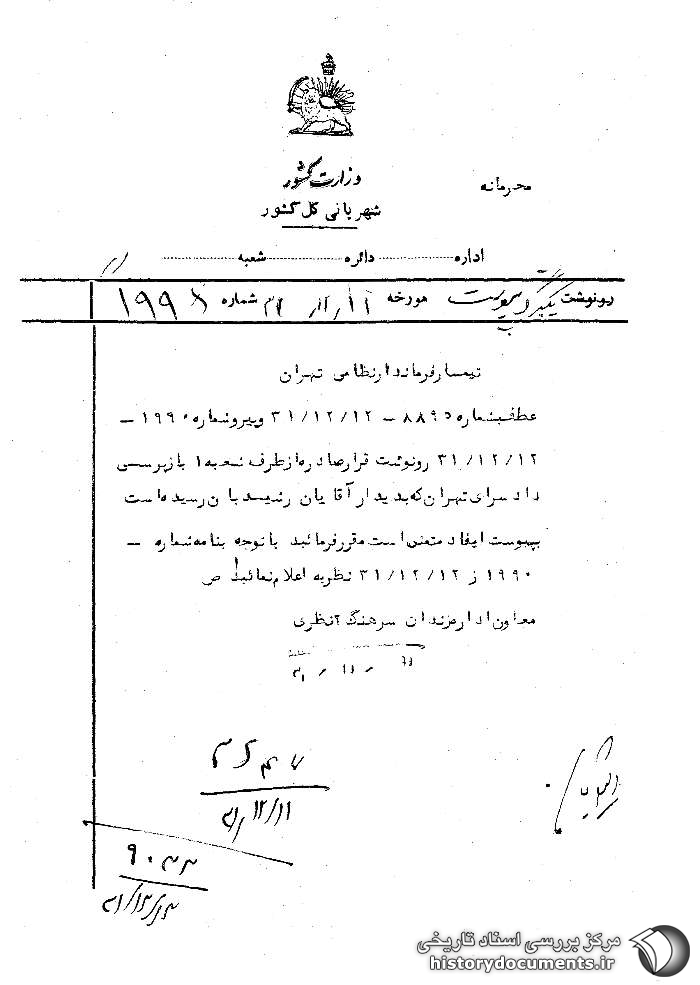 وزارت کشور
محرمانه
شهربانی کل کشور
اداره ........ دائره ........ شعبه ........
رونوشت مورخه شماره ۱۹۹۸
تیمسار فرماندار نظامی تهران
عطف بشماره ۸۸۹۵ – ۳۱/۱۲/۱۲ و پیرو شماره ۱۹۹۰ –
۳۱/۱۲/۱۲ رونوشت قرار صادره از طرف شعبه ۱ بازپرسی
دادسرای تهران که بدیدار آقایان رئیسدبان رسیده است
بپیوست ایفاد متمنی است مقرر فرمائید با توجه بنامه شماره –
۱۹۹۰ ز ۳۱/۱۲/۱۲ نظریه اعلام نمائید ص
معاون اداره زندان سرهنگ ۲ نظری
۳۱/۱۲/۱۱
۹۰۳۳
۳۱/۱۲/۱۳
مرکز بررسی اسناد تاریخی
historydocuments.ir